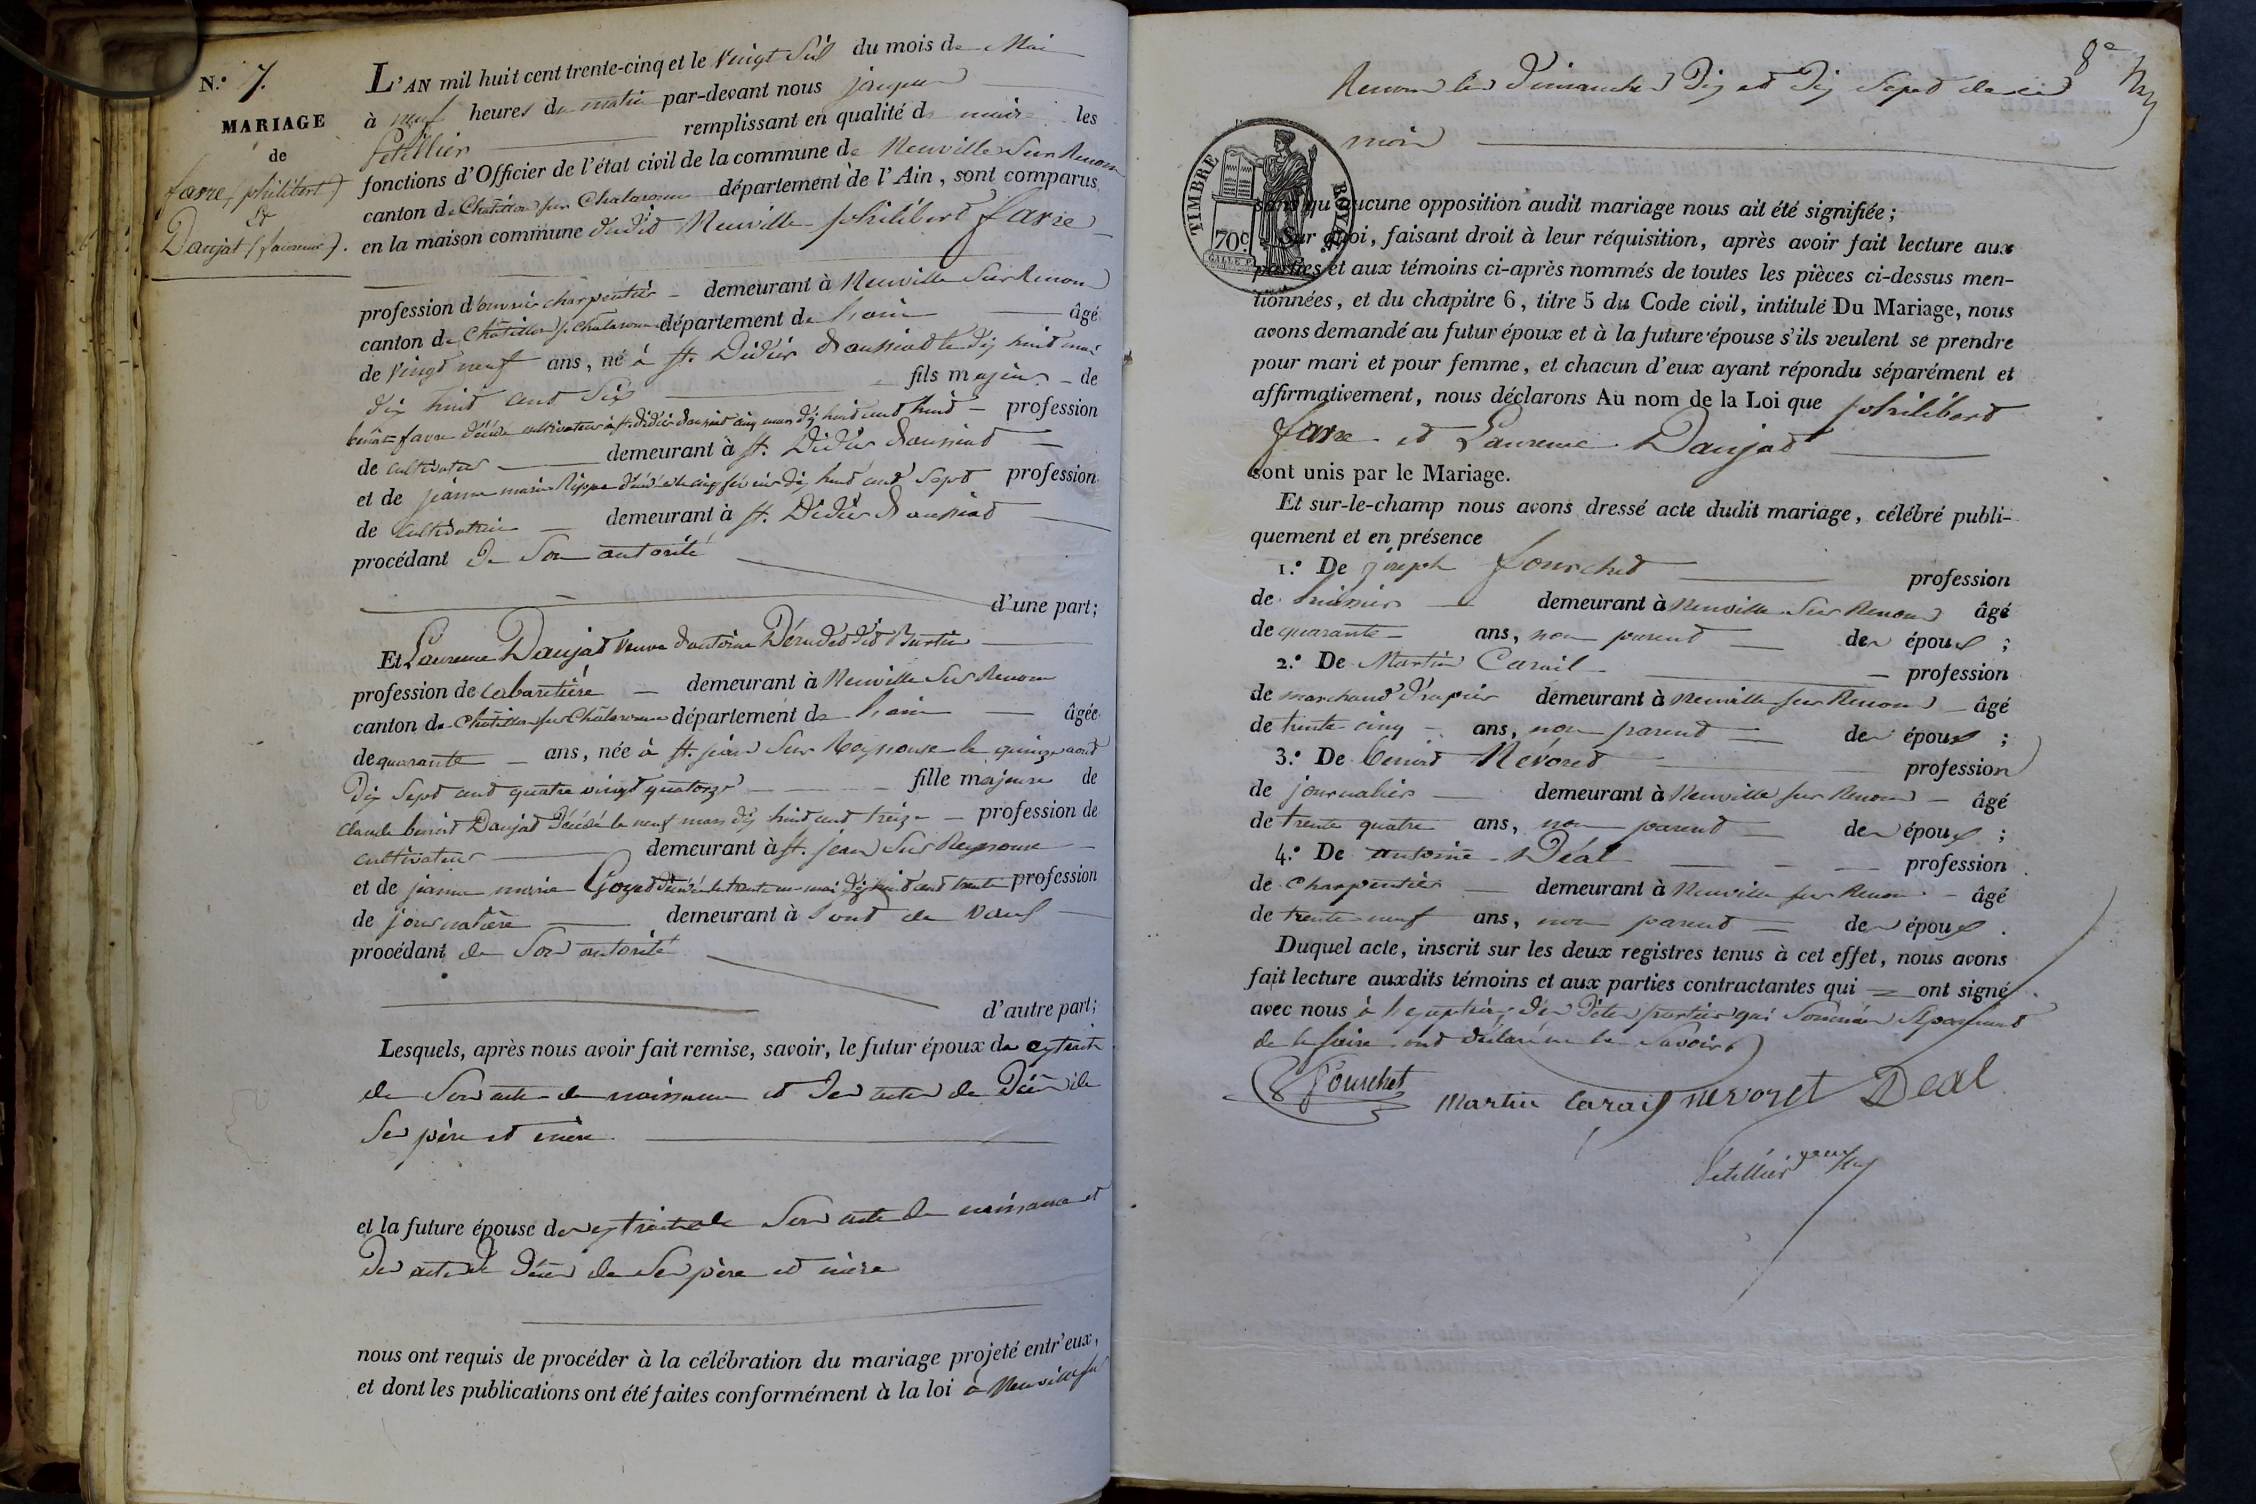 N.º 7.
MARIAGE
de
favre (philibert)
et
Daujat (laurence).
L'AN mil huit cent trente-cinq et le vingt six du mois de Mai
à neuf heures du matin par-devant nous jacques
Letellier remplissant en qualité de maire les
fonctions d'Officier de l'état civil de la commune de Neuville Sur Renom
canton de Châtillon sur Chalaronne département de l'Ain, sont comparus
en la maison commune dudit Neuville philibert favre
profession d'ouvrier charpentier demeurant à Neuville Sur Renom
canton de Châtillon s. chalaronne département de l'ain âgé
de vingt neuf ans, né à St. Didier d'aussiat le dix huit mai
dix huit cent six fils majeur de
benoit favre décédé cultivateur à St. Didier d'aussiat cinq mars dix huit cent huit profession
de cultivateur demeurant à St. Didier d'aussiat
et de jeanne marie Rippe décédée le cinq février dix huit cent sept profession
de cultivatrice demeurant à St. Didier d'aussiat
procédant de Son autorité
d'une part;
Et Laurence Daujat veuve d'antoine Déruded dit Burtin
profession de cabaretière demeurant à Neuville Sur Renom
canton de Châtillon sur Chalaronne département de l'ain âgée
de quarante ans, née à St. jean Sur Reyssouse le quinze aout
dix Sept cent quatre vingt quatorze fille majeure de
claude benoit Daujat décédé le neuf mars dix huit cent treize profession de
cultivateur demeurant à St. jean Sur Reyssouse
et de jeanne marie Goyet décédée le trente un mai dix huit cent trente profession
de journalière demeurant à Pont de Vaux
procédant de Son autorité
d'autre part;
Lesquels, après nous avoir fait remise, savoir, le futur époux de extraits
de Son acte de naissance et des actes de Décès de
Ses père et mère
et la future épouse des extraits de Son acte de naissance et
des actes de décès de Ses père et mère
nous ont requis de procéder à la célébration du mariage projeté entr'eux,
et dont les publications ont été faites conformément à la loi à Neuville sur
8e
Renom les Dimanches Dix et Dix Sept de ce
mois
TIMBRE ROYAL
70c
sans qu'aucune opposition audit mariage nous ait été signifiée;
Sur quoi, faisant droit à leur réquisition, après avoir fait lecture aux
parties et aux témoins ci-après nommés de toutes les pièces ci-dessus men-
tionnées, et du chapitre 6, titre 5 du Code civil, intitulé Du Mariage, nous
avons demandé au futur époux et à la future épouse s'ils veulent se prendre
pour mari et pour femme, et chacun d'eux ayant répondu séparément et
affirmativement, nous déclarons Au nom de la Loi que philibert
favre et Laurence Daujat
sont unis par le Mariage.
Et sur-le-champ nous avons dressé acte dudit mariage, célébré publi-
quement et en présence
1.º De joseph fourchet profession
de huissier demeurant à Neuville Sur Renom âgé
de quarante ans, non parent des époux ;
2.º De Martin Carail profession
de marchand drapier demeurant à Neuville sur Renom âgé
de trente cinq ans, non parent des époux ;
3.º De benoit Névoret profession
de journalier demeurant à Neuville sur Renom âgé
de trente quatre ans, non parent des époux ;
4.º De antoine Déal profession
de charpentier demeurant à Neuville sur Renom âgé
de trente neuf ans, non parent des époux .
Duquel acte, inscrit sur les deux registres tenus à cet effet, nous avons
fait lecture auxdits témoins et aux parties contractantes qui ont signé
avec nous à l'exception des dites parties qui Sommées Séparément
de le faire ont déclaré ne le Savoir.
Fourchet
Martin Carail nevoret Deal
Letellier